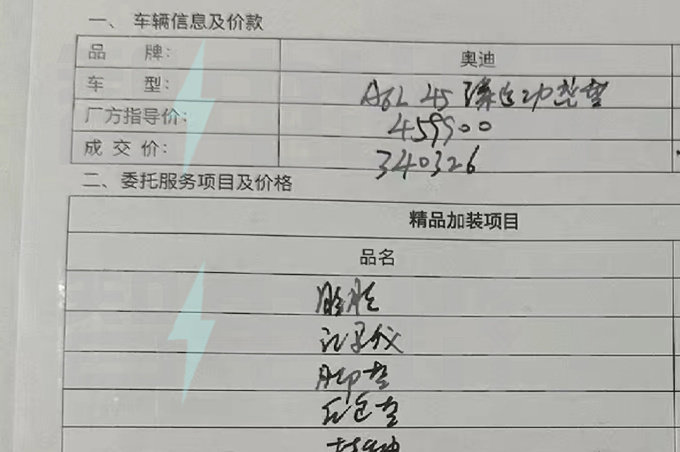 一、车辆信息及价款
品 牌: 奥迪
车 型: A6L 45 臻选动感型
厂方指导价: 459900
成 交 价: 340326
二、委托服务项目及价格
精品加装项目
品名
记录仪
脚垫